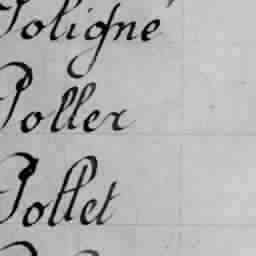 Poligné
Poller
Pollet